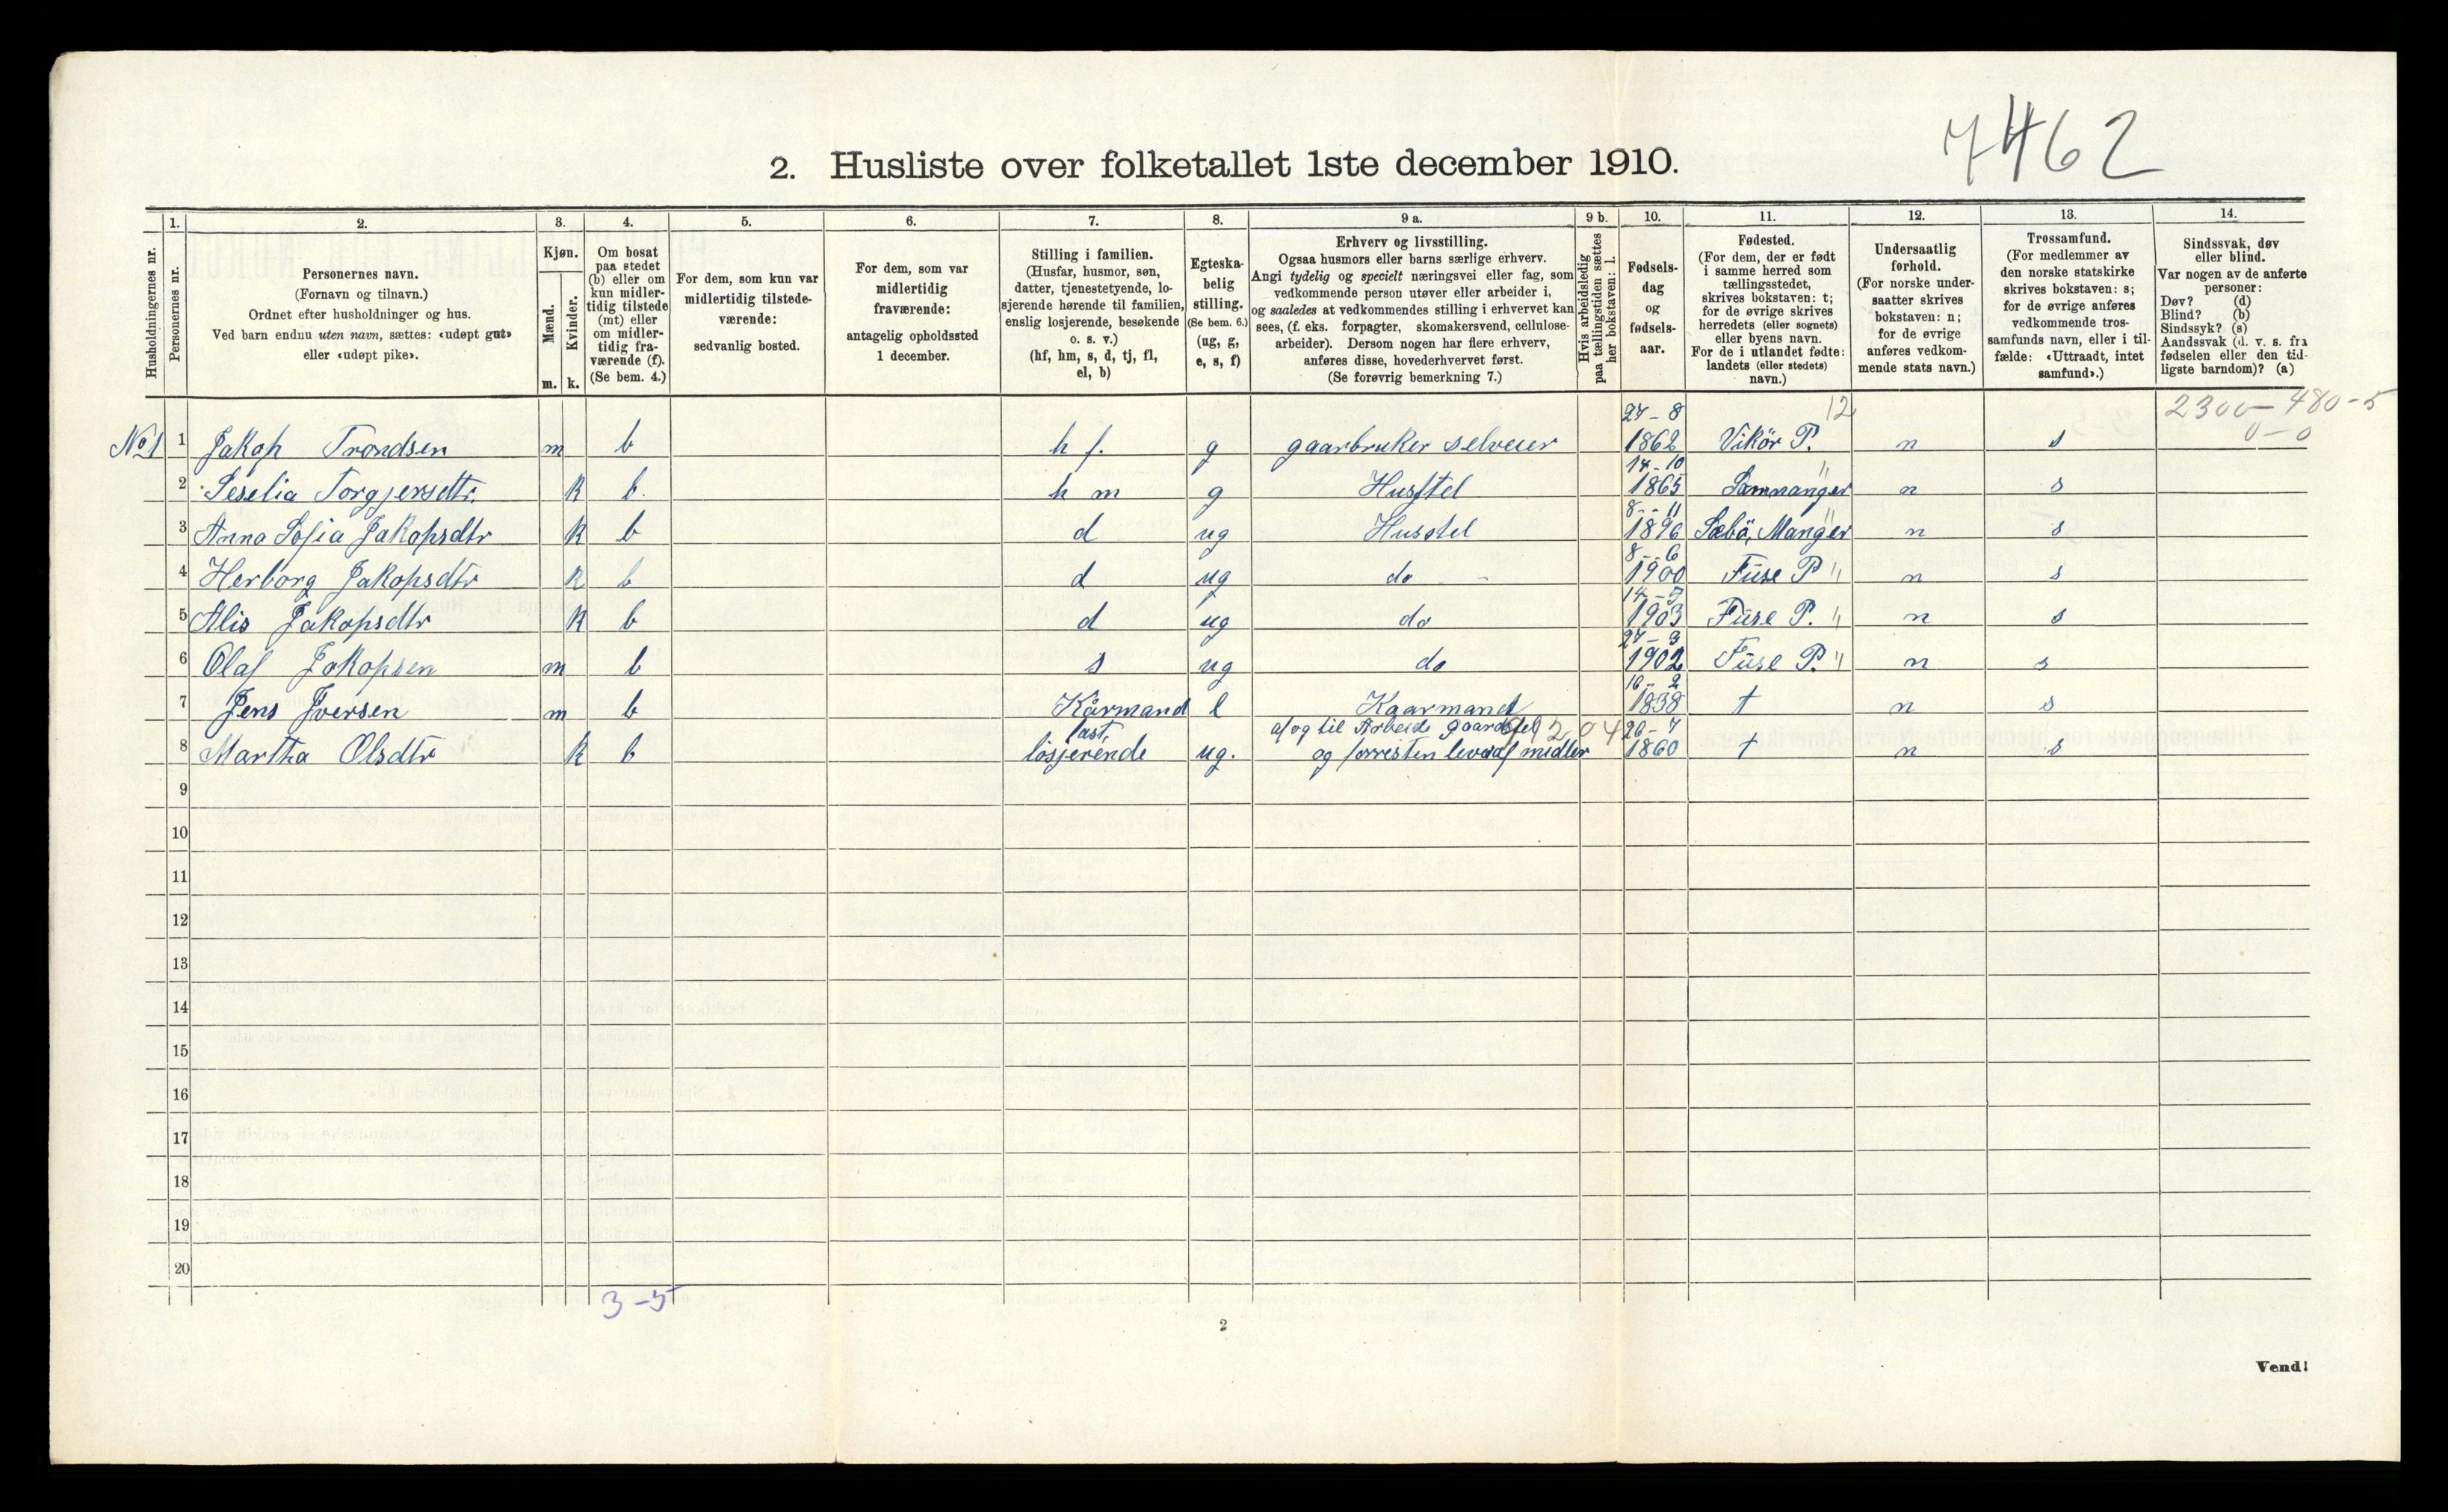 7462
2. Husliste over folketallet 1ste december 1910.
Husholdningernes nr.
1.
Personernes nr.
2.
Personernes navn.
(Fornavn og tilnavn.)
Ordnet efter husholdninger og hus.
Ved barn endnu uten navn, sættes: «udøpt gut»
eller «udøpt pike».
3.
Kjøn.
Mænd.
Kvinder.
m. k.
4.
Om bosat
paa stedet
(b) eller om
kun midler-
tidig tilstede
(mt) eller
om midler-
tidig fra-
værende (f).
(Se bem. 4.)
5.
For dem, som kun var
midlertidig tilstede-
værende:
sedvanlig bosted.
6.
For dem, som var
midlertidig
fraværende:
antagelig opholdssted
1 december.
7.
Stilling i familien.
(Husfar, husmor, søn,
datter, tjenestetyende, lo-
sjerende hørende til familien,
enslig losjerende, besøkende
o. s. v.)
(hf, hm, s, d, tj, fl,
el, b)
8.
Egteska-
belig
stilling.
(Se bem. 6.)
(ug, g,
e, s, f)
9 a.
Erhverv og livsstilling.
Ogsaa husmors eller barns særlige erhverv.
Angi tydelig og specielt næringsvei eller fag, som
vedkommende person utøver eller arbeider i,
og saaledes at vedkommendes stilling i erhvervet kan
sees, (f. eks. forpagter, skomakersvend, cellulose-
arbeider). Dersom nogen har flere erhverv,
anføres disse, hovederhvervet først.
(Se forøvrig bemerkning 7.)
9 b.
Hvis arbeidsledig
paa tællingstiden sættes
her bokstaven: l.
10.
Fødsels-
dag
og
fødsels-
aar.
11.
Fødested.
(For dem, der er født
i samme herred som
tællingsstedet,
skrives bokstaven: t;
for de øvrige skrives
herredets (eller sognets)
eller byens navn.
For de i utlandet fødte:
landets (eller stedets)
navn.)
12.
Undersaatlig
forhold.
(For norske under-
saatter skrives
bokstaven: n;
for de øvrige
anføres vedkom-
mende stats navn.)
13.
Trossamfund.
(For medlemmer av
den norske statskirke
skrives bokstaven: s;
for de øvrige anføres
vedkommende tros-
samfunds navn, eller i til-
fælde: «Uttraadt, intet
samfund».)
14.
Sindssvak, døv
eller blind.
Var nogen av de anførte
personer:
Døv? (d)
Blind? (b)
Sindssyk? (s)
Aandssvak (d. v. s. fra
fødselen eller den tid-
ligste barndom)? (a)
27-8 12 2300-480-5
0-0
No 1 1 Jakop Trondsen m b h f. g gaarbruker selveier 1862 Vikör P. n s
14-10 "
2 Seselia Torgjersdtr. k b. h m g Husstel 1865 Samnanger n s
8-11 "
3 Anna Sofia Jakopsdtr k b d ug Husstel 1896 Sæbö, Manger n s
8-6
4 Herborg Jakopsdtr k b d ug do - 1900 Fuse P " n s
5 Alis Jakopsdtr k b d ug do 1903 Fuse P. " n s
6 Olaf Jakopsen m b s ug do 1902 Fuse P. " n s
7 Jens Iversen m b Kårmand l Kaarmand 1838 t n s
af og til Arbeide
8 Martha Olsdtr k b losjerende ug. og forresten lever af midler 1860 t n s
9
10
11
12
13
14
15
16
17
18
19
20
3-5
2
Vend!